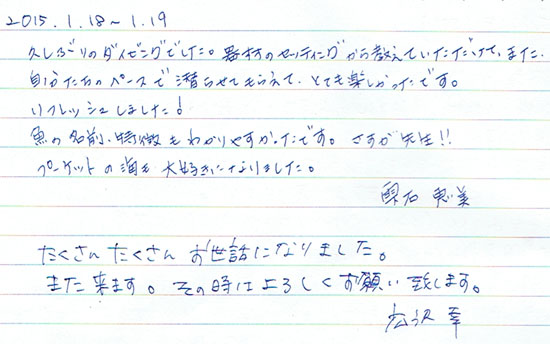 2015.1.18～1.19
久しぶりのダイビングでした。器材のセッティングから教えていただけて、また、
自分たちのペースで潜らせてもらえて、とても楽しかったです。
リフレッシュしました！
魚の名前、特徴もわかりやすかったです。さすが先生！！
プーケットの海も大好きになりました。
雫石 恵美
たくさんたくさんお世話になりました。
また来ます。その時はよろしくお願い致します。
松沢 幸